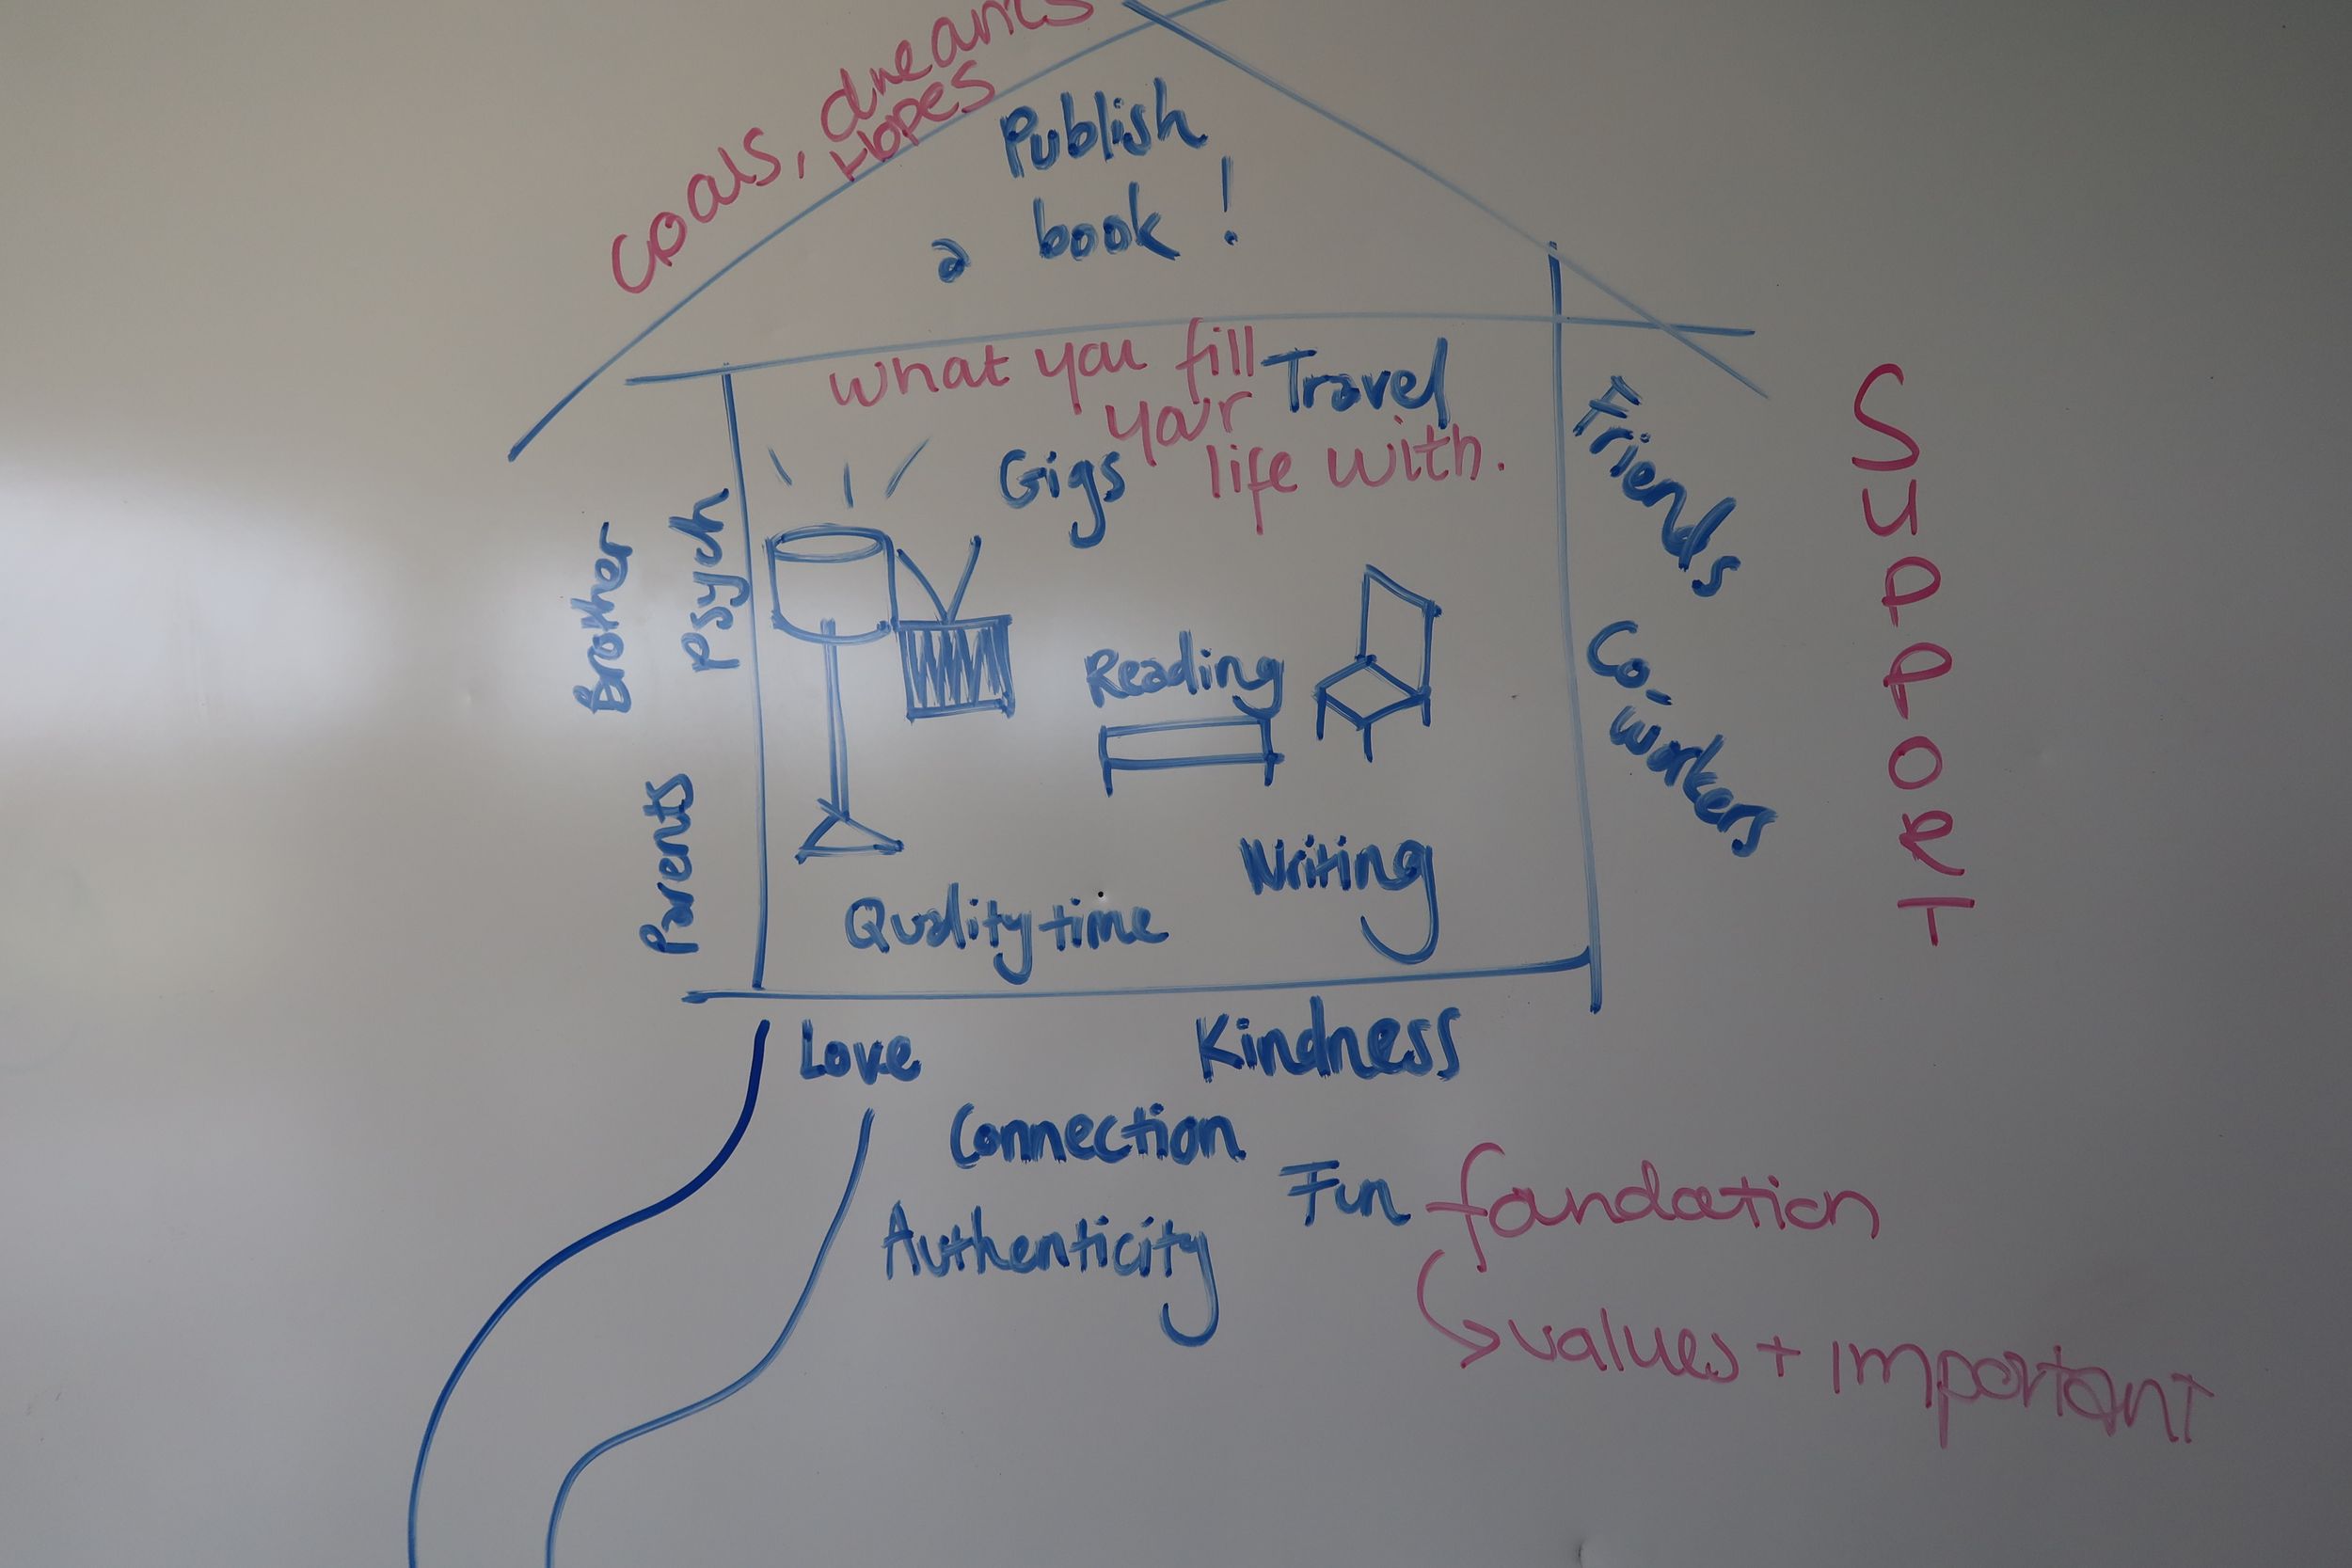 Goals, dreams
Hopes
Publish
a book!
What you fill
your
life with.
Travel
Gigs
Friends
Co-
workers
SUPPORT
Brother
Psych
Parents
Reading
Writing
Quality time
Love
Kindness
Connection
Fun
Authenticity
foundation
values + important